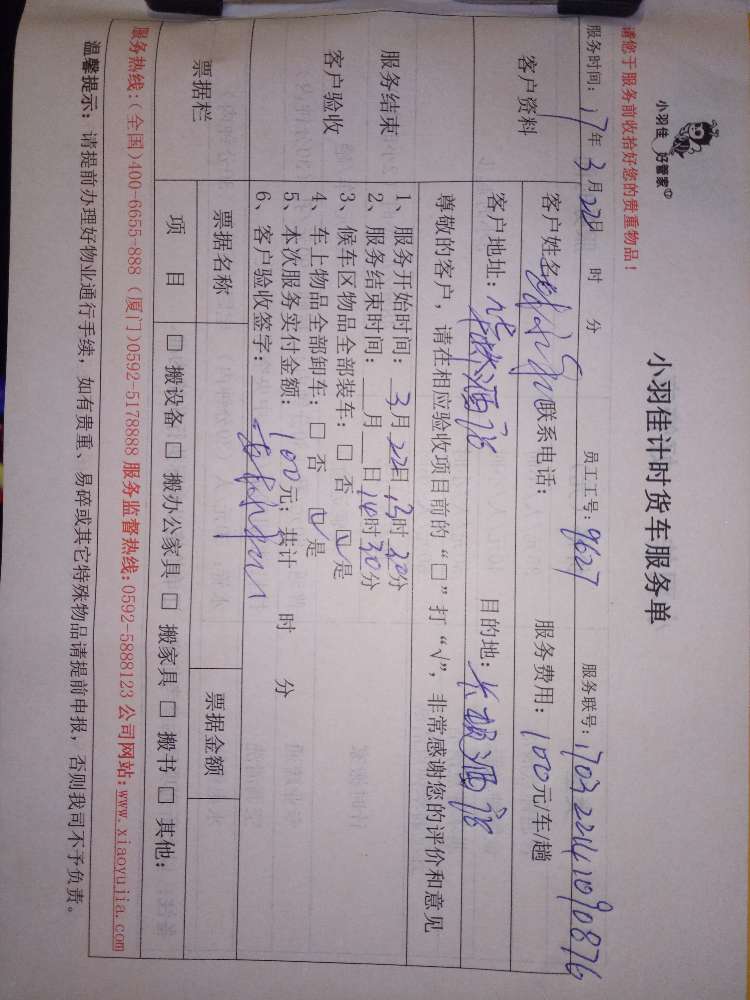 请您于服务前收拾好您的贵重物品！
小羽佳 好管家
小羽佳计时货车服务单
服务时间：17年3月22日 时 分 员工工号：9627 服务联号：
客户资料
客户姓名： 联系电话： 服务费用：100元/车/趟
客户地址： 酒店 目的地： 酒店
尊敬的客户，请在相应验收项目前的“□”打“√”，非常感谢您的评价和意见
服务结束
客户验收
1、服务开始时间：3月22日13时20分
2、服务结束时间：__月__日14时30分
3、候车区物品全部装车：□ 否 ☑ 是
4、车上物品全部卸车：□ 否 ☑ 是
5、本次服务实付金额：100元；共计 时 分
6、客户验收签字：
票据栏
票据名称 票据金额
项 目 □ 搬设备 □ 搬办公家具 □ 搬家具 □ 搬书 □ 其他：
服务热线：(全国)400-6655-888 (厦门)0592-5178888 服务监督热线：0592-5888123 公司网站：www.xiaoyujia.com
温馨提示：请提前办理好物业通行手续，如有贵重、易碎或其它特殊物品请提前申报，否则我司不予负责。